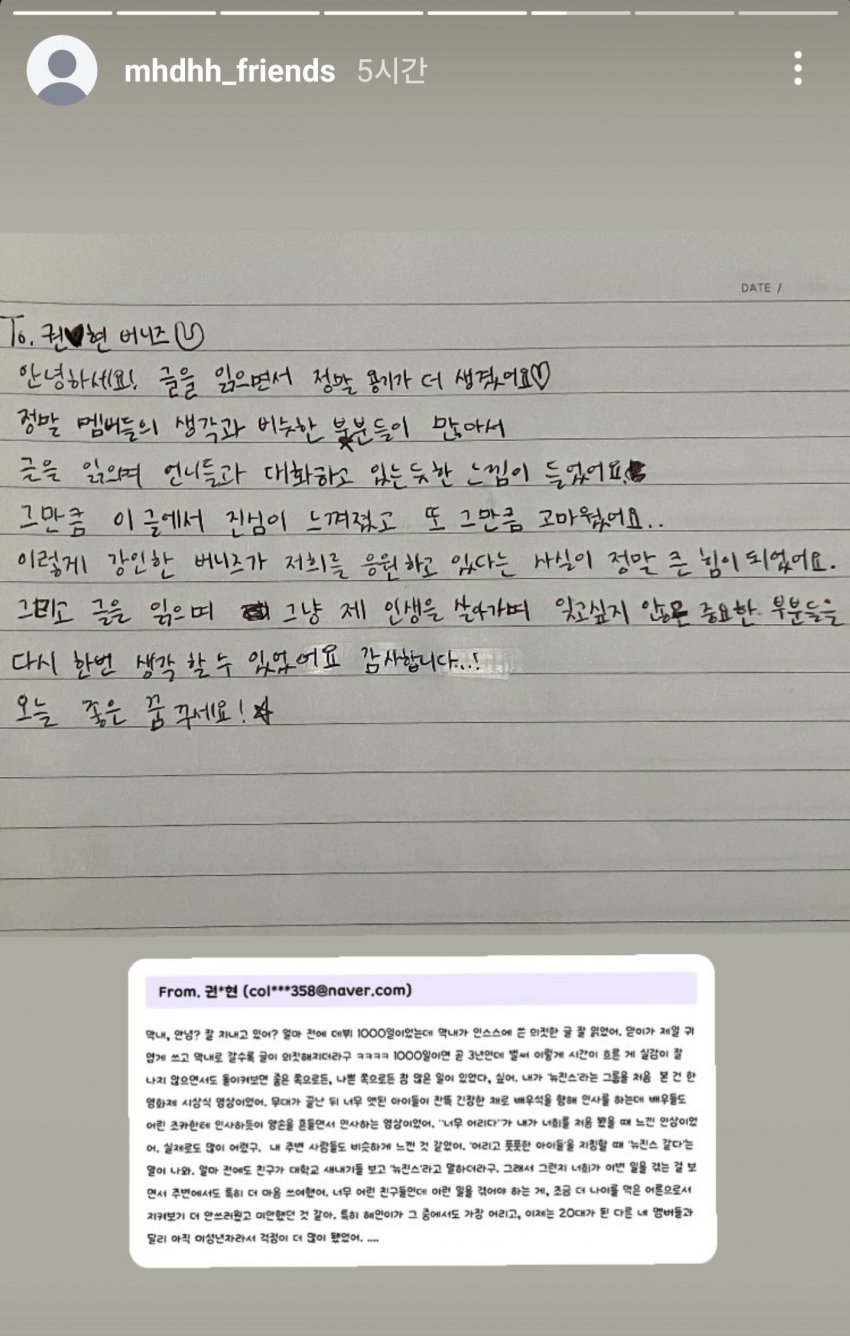 mhdhh_friends 5시간
DATE /
To. 권♥현 버니즈
안녕하세요! 글을 읽으면서 정말 용기가 더 생겼어요♡
정말 멤버들의 생각과 비슷한 부분들이 많아서
글을 읽으며 언니들과 대화하고 있는듯한 느낌이 들었어요
그만큼 이 글에서 진심이 느껴졌고 또 그만큼 고마웠어요..
이렇게 강인한 버니즈가 저희를 응원하고 있다는 사실이 정말 큰 힘이 되었어요.
그리고 글을 읽으며 그냥 제 인생을 살아가며 잊고싶지 않은 중요한 부분들을
다시 한번 생각 할 수 있었어요 감사합니다..!
오늘 좋은 꿈 꾸세요!☆
From. 권*현 (col***358@naver.com)
막내, 안녕? 잘 지내고 있어? 얼마 전에 데뷔 1000일이었는데 막내가 인스스에 쓴 의젓한 글 잘 읽었어. 맏이가 제일 귀
엽게 쓰고 막내로 갈수록 글이 의젓해지더라구 ㅋㅋㅋㅋ 1000일이면 곧 3년인데 벌써 이렇게 시간이 흐른 게 실감이 잘
나지 않으면서도 돌이켜보면 좋은 쪽으로든, 나쁜 쪽으로든 참 많은 일이 있었다, 싶어. 내가 '뉴진스'라는 그룹을 처음 본 건 한
영화제 시상식 영상이었어. 무대가 끝난 뒤 너무 앳된 아이들이 잔뜩 긴장한 채로 배우석을 향해 인사를 하는데 배우들도
어린 조카한테 인사하듯이 양손을 흔들면서 인사하는 영상이었어. "너무 어리다"가 내가 너희를 처음 봤을 때 느낀 인상이었
어. 실제로도 많이 어렸구. 내 주변 사람들도 비슷하게 느낀 것 같았어. '어리고 풋풋한 아이들'을 지칭할 때 '뉴진스 같다'는
말이 나와. 얼마 전에도 친구가 대학교 새내기들 보고 '뉴진스'라고 말하더라구. 그래서 그런지 너희가 이번 일을 겪는 걸 보
면서 주변에서도 특히 더 마음 쓰여했어. 너무 어린 친구들인데 이런 일을 겪어야 하는 게, 조금 더 나이를 먹은 어른으로서
지켜보기 더 안쓰러웠고 미안했던 것 같아. 특히 혜인이가 그 중에서도 가장 어리고, 이제는 20대가 된 다른 네 멤버들과
달리 아직 미성년자라서 걱정이 더 많이 됐었어. ....